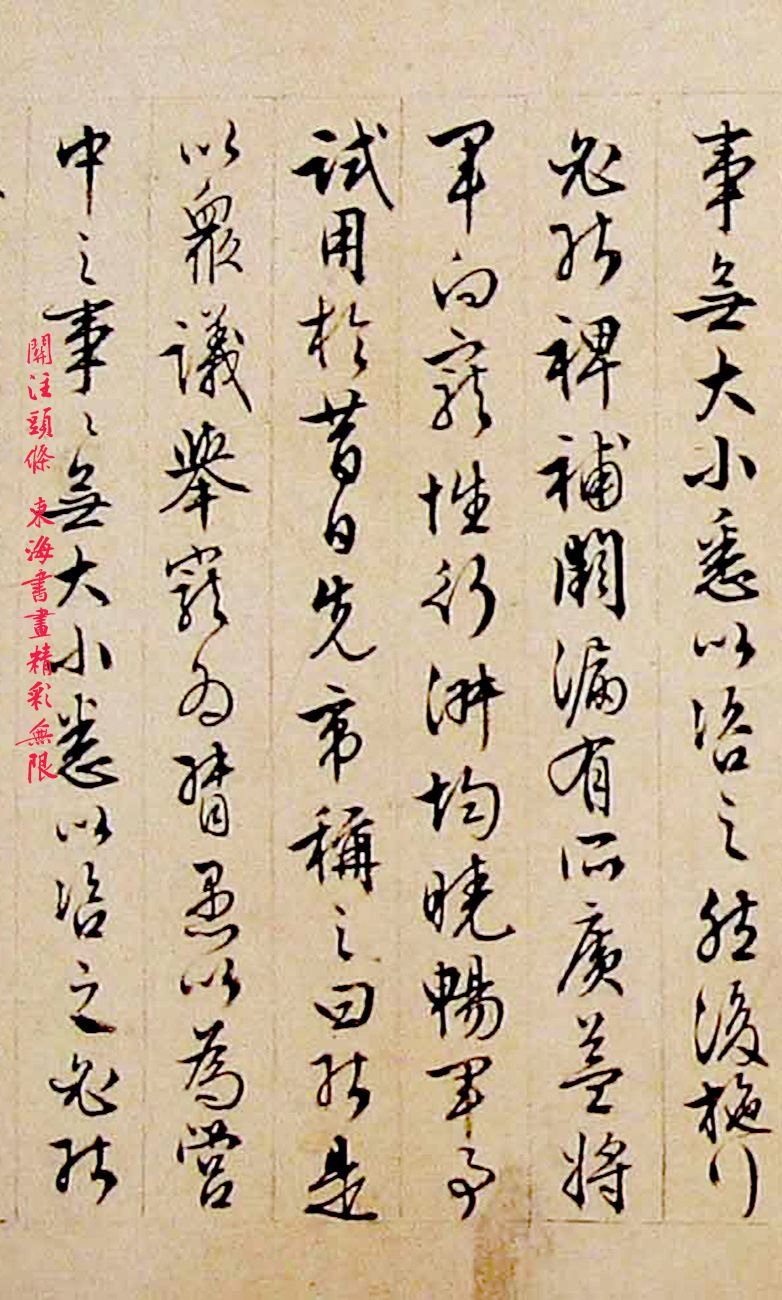 事無大小悉以咨之然後施行
必能裨補闕漏有所廣益將
軍向寵性行淑均曉暢軍事
試用於昔日先帝稱之曰能是
以眾議舉寵為督愚以為營
中之事〻無大小悉以咨之必能
關注頭條 東海書畫精彩無限